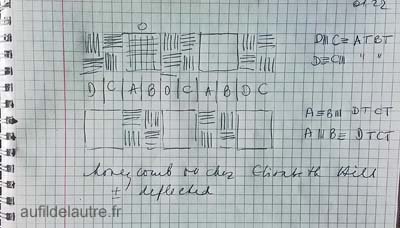 01.22
O
D|||C≡ ATBT
D≡C||| " "
D|C|A|B|D|C|A|B|D C
A≡B||| DTCT
A|||B≡ DTCT
honeycomb chez Elizabeth Hill
± deflected
aufildelautre.fr